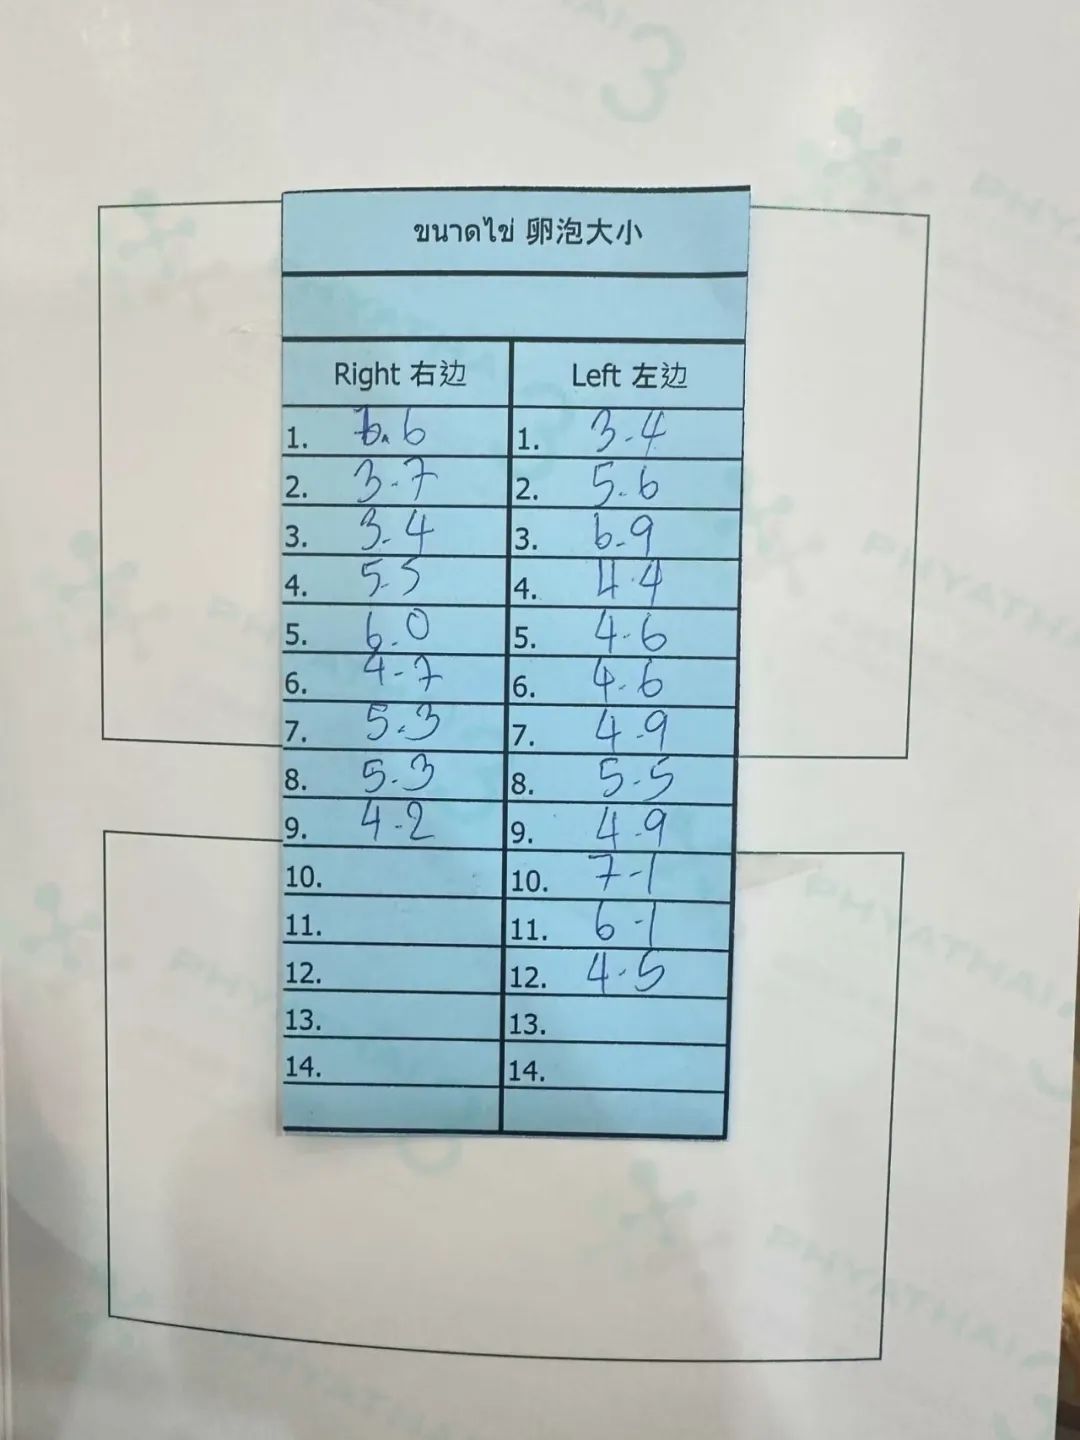 ขนาดไข่ 卵泡大小
Right 右边 Left 左边
1. 6.6 1. 3.4
2. 3.7 2. 5.6
3. 3.4 3. 6.9
4. 5.5 4. 4.4
5. 6.0 5. 4.6
6. 4.7 6. 4.6
7. 5.3 7. 4.9
8. 5.3 8. 5.5
9. 4.2 9. 4.9
10. 10. 7.1
11. 11. 6.1
12. 12. 4.5
13. 13.
14. 14.